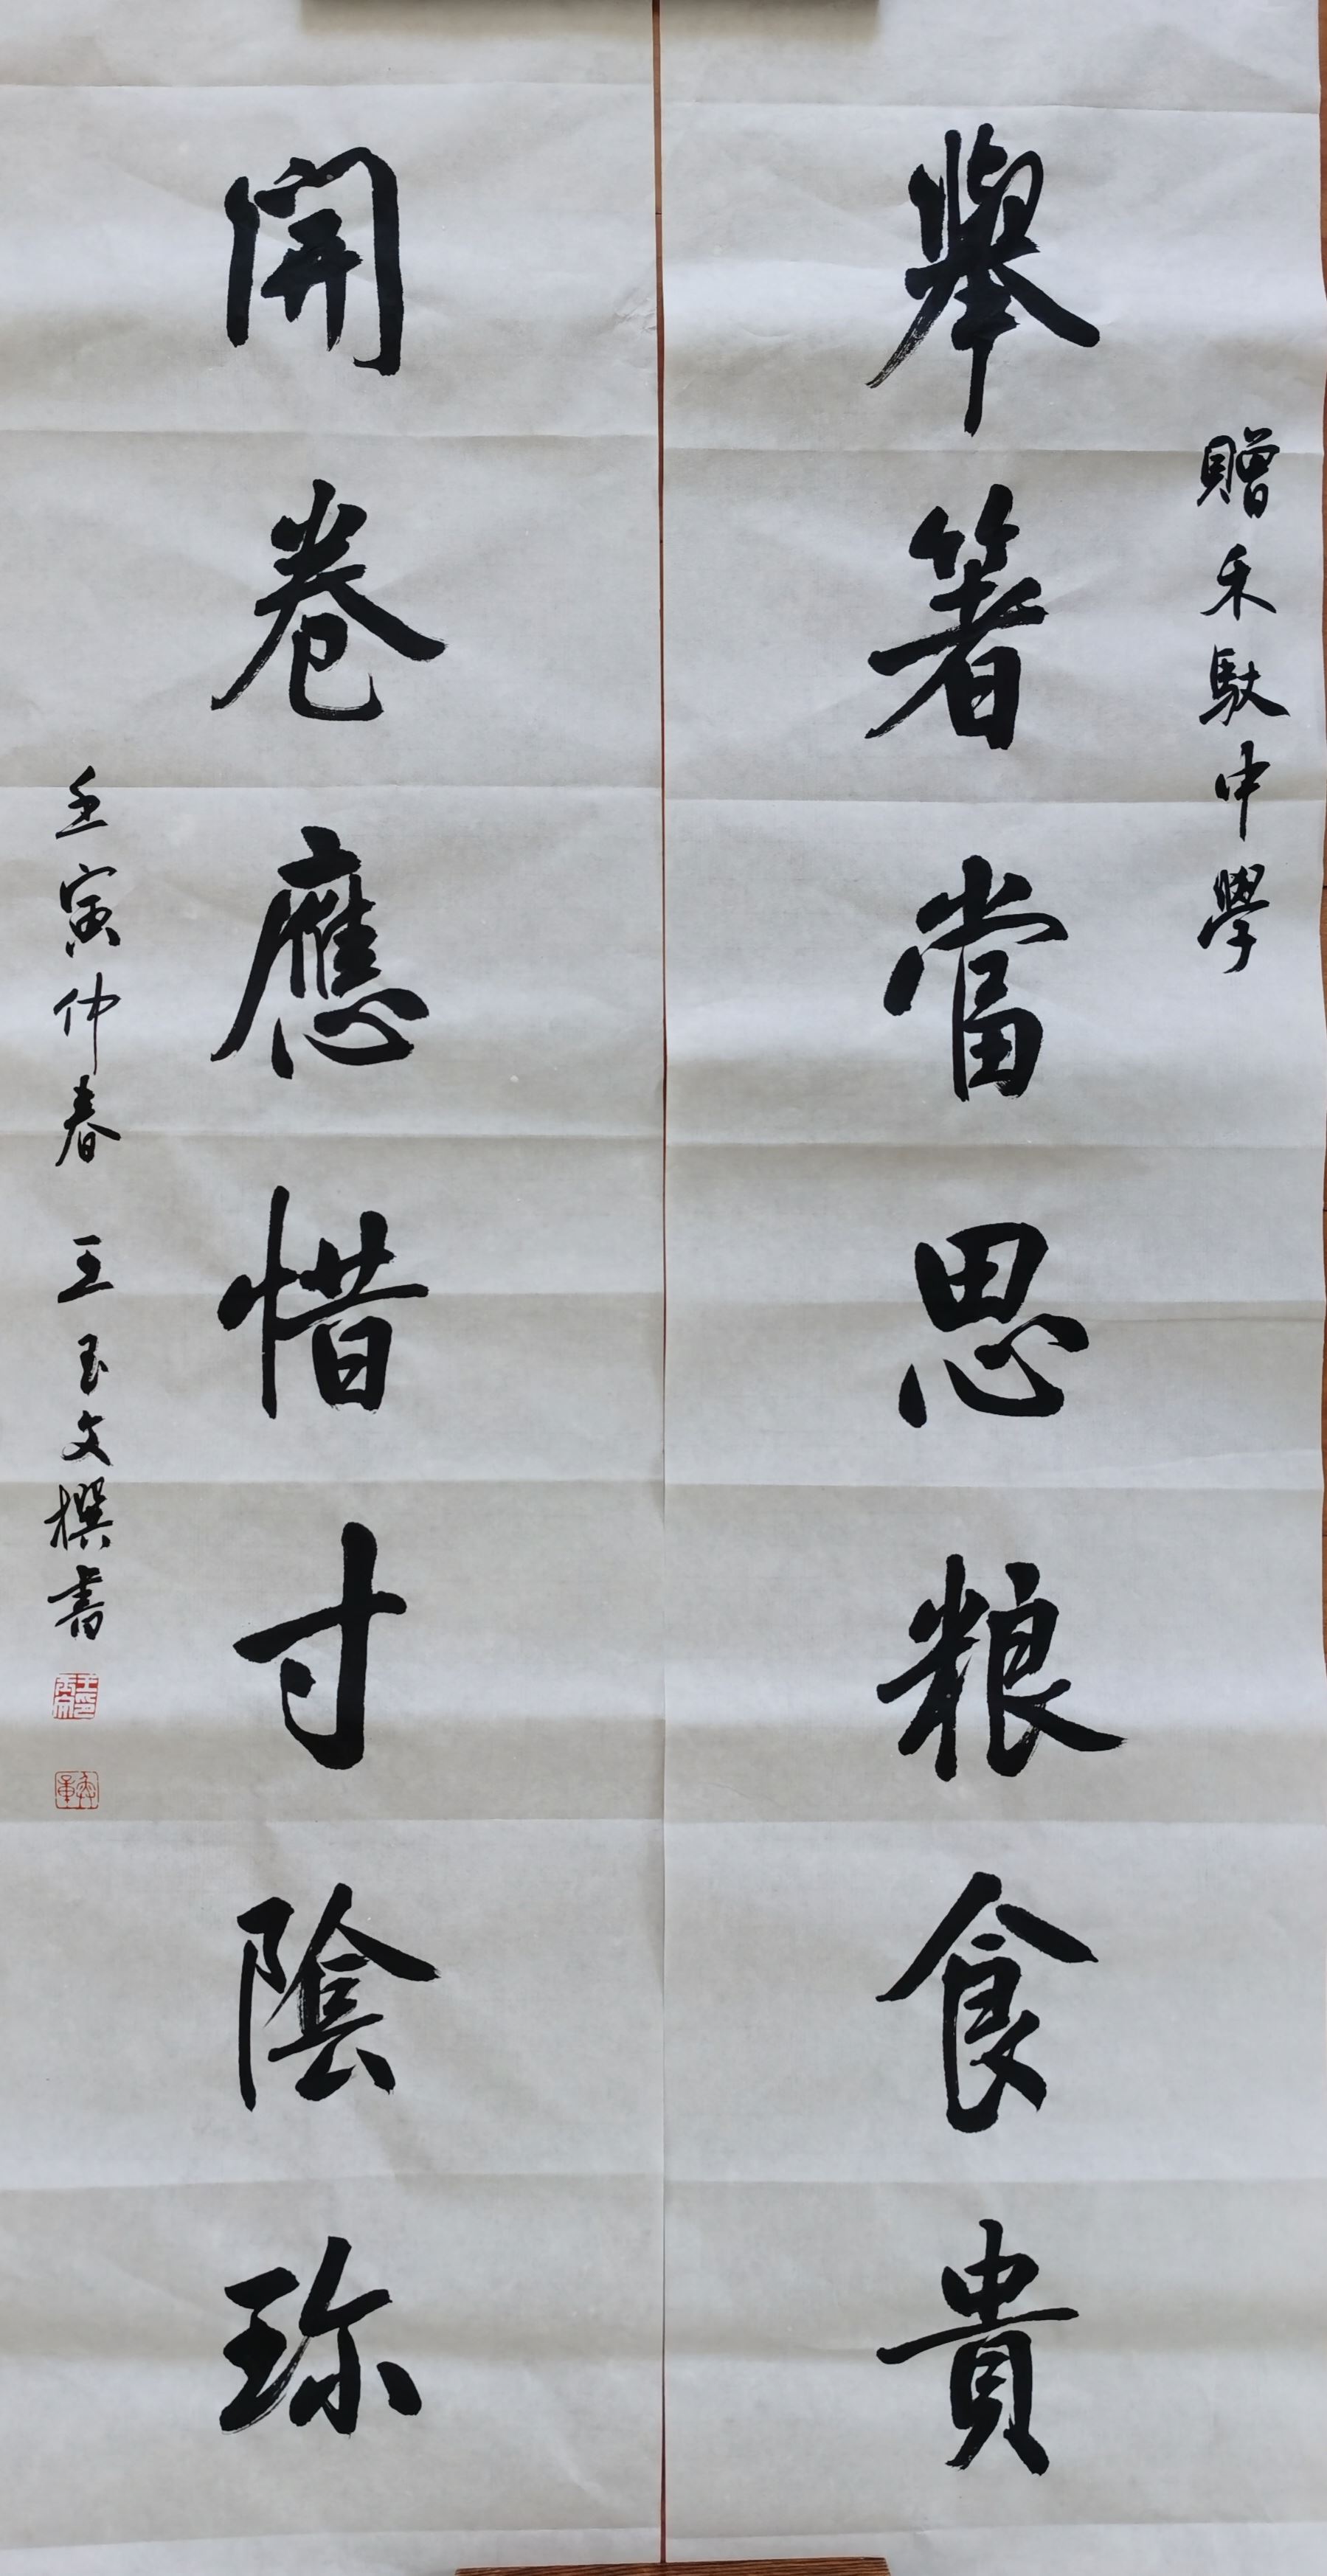 贈禾馱中學
舉箸當思粮食貴
開卷應惜寸陰珎
壬寅仲春 王玉文撰書